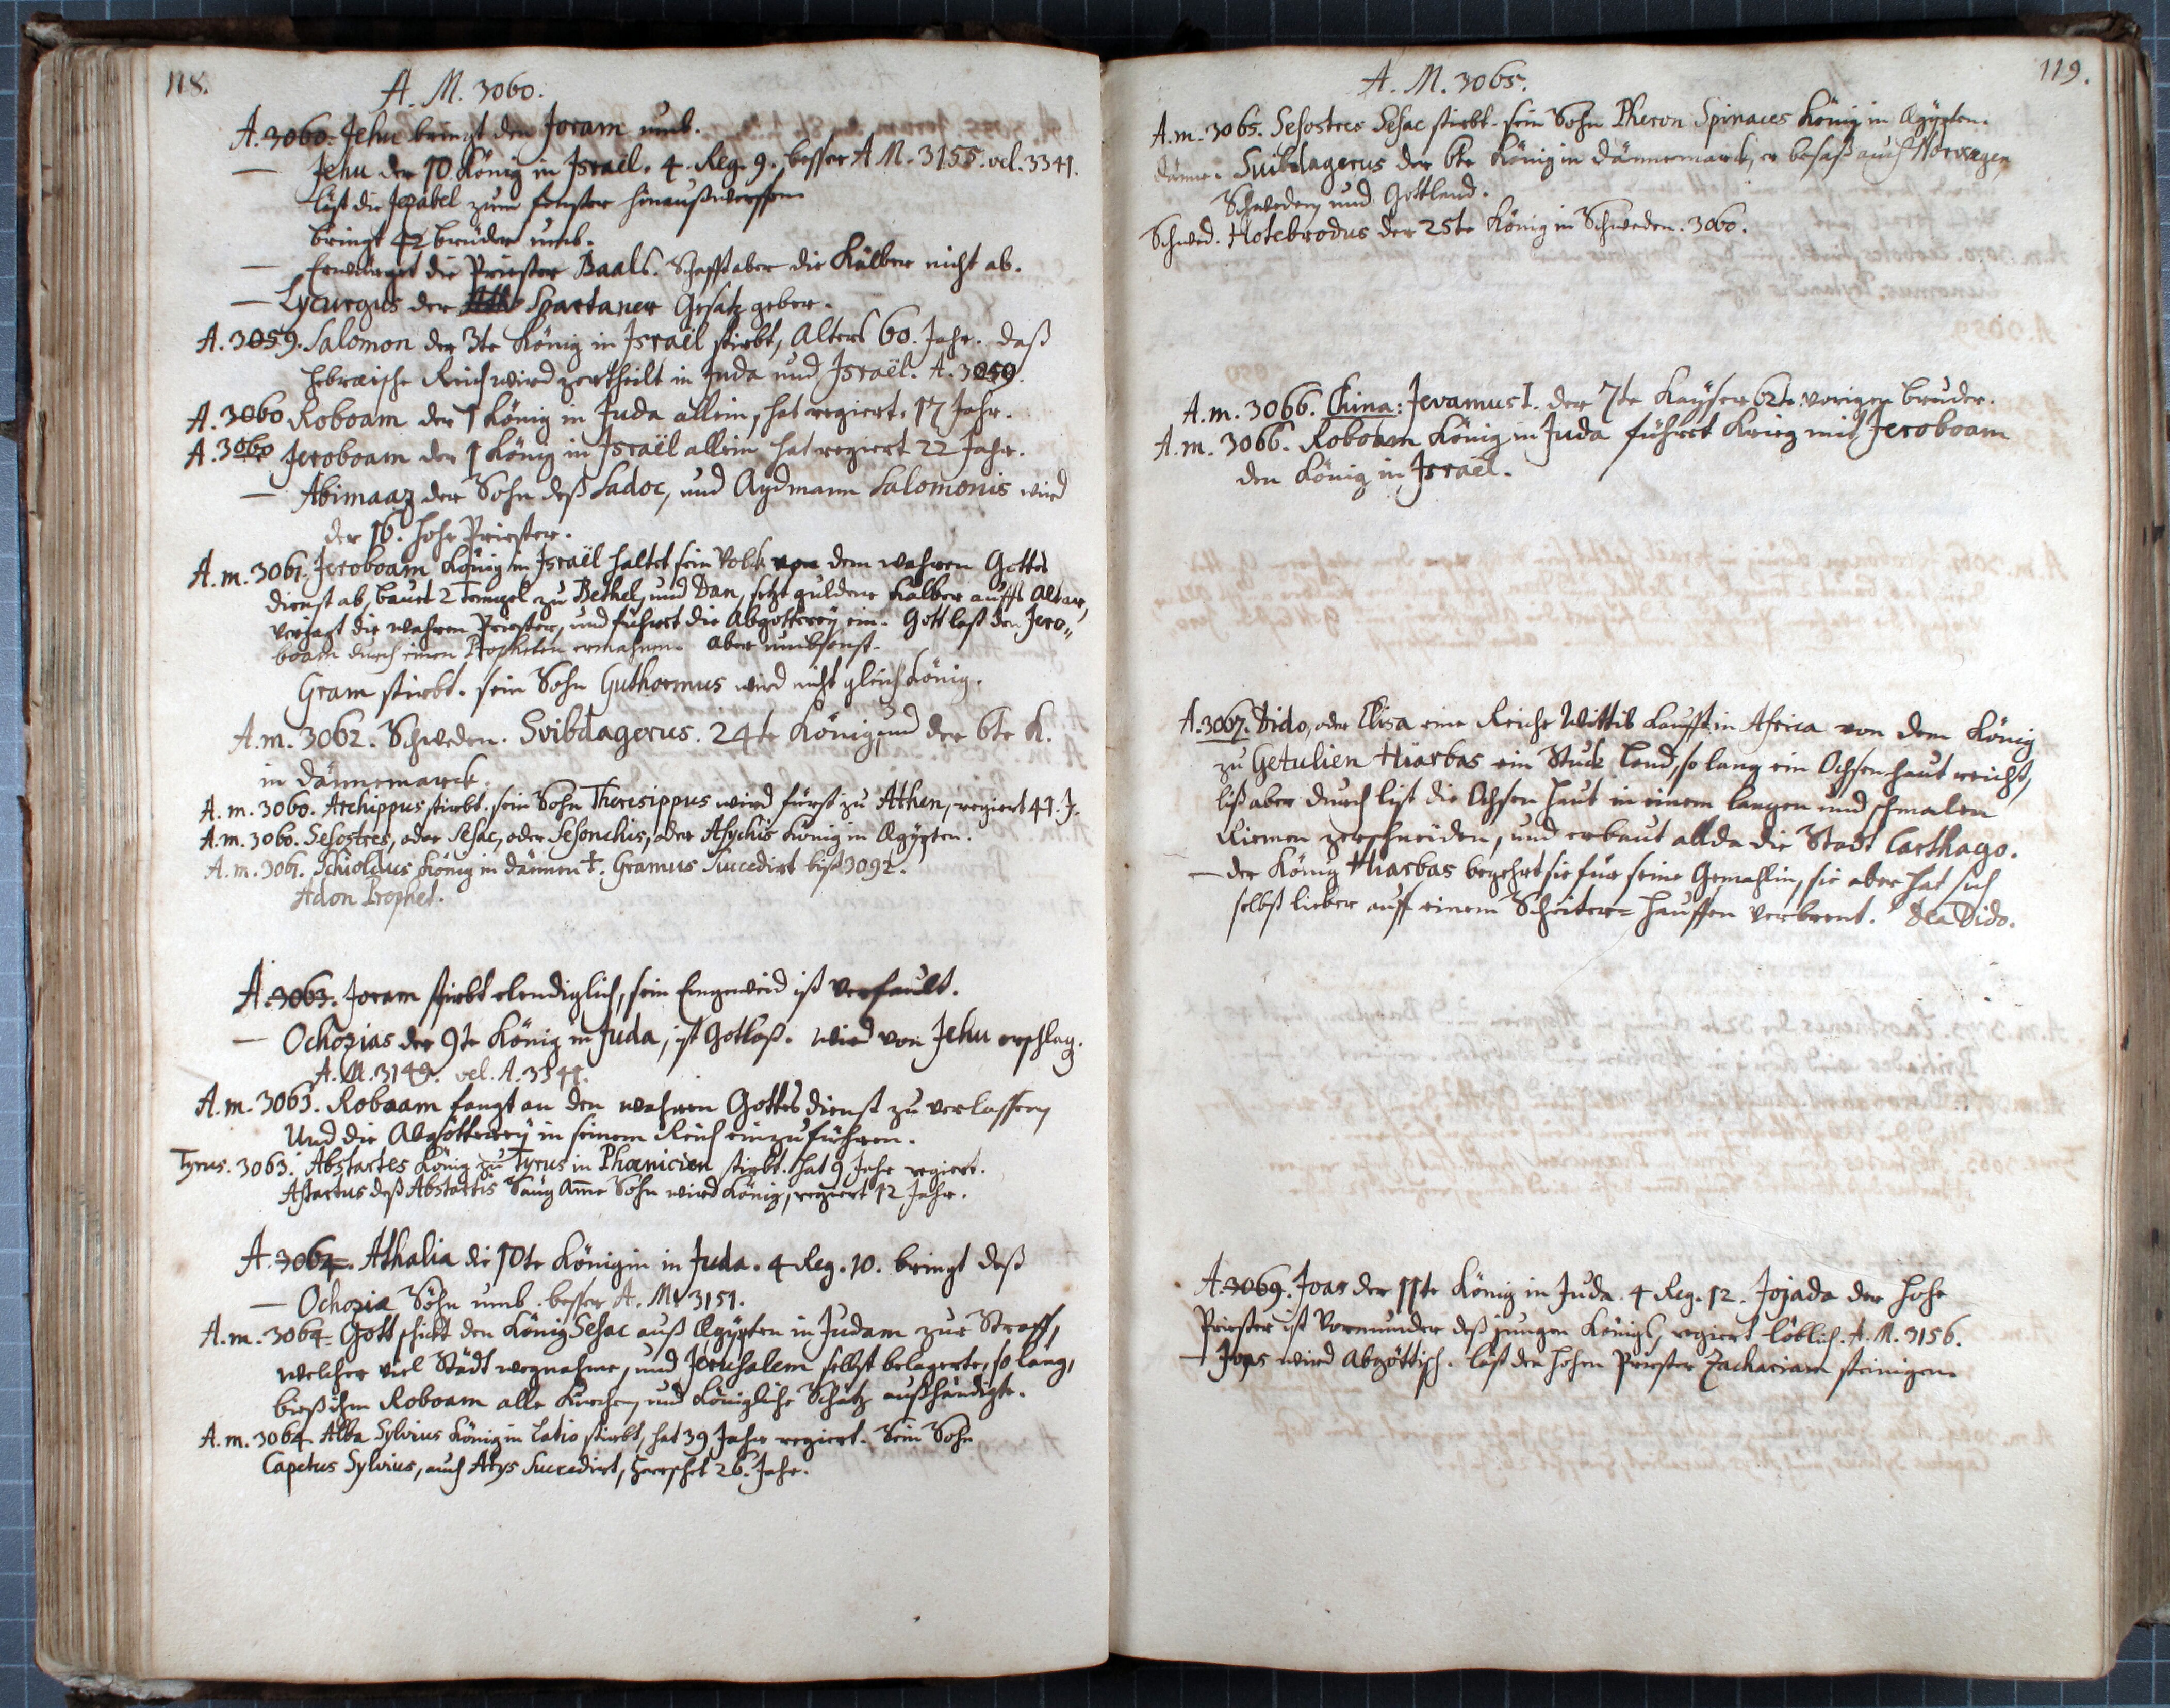 118.
A. M. 3060.
A. 3060. Jehu bringt den Joram umb.
— Jehu der 10. König in Israël. 4. Reg. 9. besser A M. 3155. vel. 3341.
läst die Jezabel zum fenster hinaußwerffen
bringt 42 brüder umb.
— Erwürget die Priester Baals. Schafft aber die Kälber nicht ab.
— Lycurgus der Spartaner Gesatz geber.
A. 3059. Salomon der 3te König in Israël stirbt, Alters 60. Jahr. daß
hebræische Reich wird zertheilt in Juda und Israël. A. 3059.
A. 3060 Roboam der 1 König in Juda allein, hat regiert. 17 Jahr.
A. 3060 Jeroboam der 1 König in Israël allein hat regiert 22 Jahr.
— Abimaaz der Sohn deß Sadoc, und Aydmann Salomonis wird
der 16. hohe Priester.
A. m. 3061. Jeroboam König in Israël haltet sein Volk von dem wahren Gottes
dienst ab, bauet 2 Tempel zu Bethel, und Dan, setzt guldene Kälber auffs Altar,
verjagt die wahren Priester, und führet die Abgötterey ein. Gott laß den Jero„
boam durch einen Propheten ermahnen. aber umbsonst.
Gram stirbt. sein Sohn Guthormus wird nicht gleich König.
A. m. 3062. Schweden. Svibdagerus. 24te König, und der 6te K.
in dännemarck.
A. m. 3060. Archippus stirbt. sein Sohn Thersippus wird fürst zu Athen, regiert 41. J.
A. m. 3060. Sesostres, oder Sesac, oder Sesonchis, oder Asychis König in Ægypten.
A. m. 3061. Schioldus König in dännem †. Gramus Succedirt biß 3092.
Adon Prophet.
A. 3063. Joram stirbt elendiglich, sein Eingeweid ist verfault.
— Ochozias der 9te König in Juda, ist Gotloß. wird von Jehu erschlag.
A. M. 3149. vel. A. 3341.
A. m. 3063. Roboam fangt an den wahren Gottesdienst zu verlassen
Und die Abgötterey in seinem Reich einzuführen.
Tyrus. 3063. Abstartes König zu Tyrus in Phœnicien stirbt. hat 9 Jahr regiert.
Astartus deß Abstartis Säug Ame Sohn wird König, regiert 12 Jahr.
A. 3064. Athalia die 10te Königin in Juda. 4 Reg. 10. bringt deß
— Ochoziæ Söhn umb. besser A. M. 3151.
A. m. 3064. Gott schickt den König Sesac auß Ægypten in Judam zur Straff,
welcher viel Städt wegnahme, und Jerusalem selbst belagerte, so lang,
bieß ihm Roboam alle Kirchen und Königliche Schätz außhändigte.
A. m. 3064. Alba Sylvius König in Latio stirbt, hat 39 Jahr regiert. Sein Sohn
Capetus Sylvius, auch Atys Succedirt, herrschet 26. Jahr.
119.
A. M. 3065.
A. m. 3065. Sesostres Sesac stirbt. sein Sohn Pheron Spinaces König in Ægypten.
dänne. Suibdagerus der 6te König in dännemarck, er besaß auch Norwegen,
Schweden, und Gottland.
Schwed. Hotebrodus der 25te König in Schweden. 3060.
A. m. 3066. China: Jevamus I. der 7te Kayser 62te vorigen bruder.
A. m. 3066. Roboam König in Juda führet krieg mit Jeroboam
den König in Israël.
A. 3067. Dido, oder Elisa eine Reiche Wittib kaufft in Africa von dem König
zu Getulien Hiarbas ein Stuck Land, so lang ein Ochsenhaut reicht,
ließ aber durch list die Ochsen haut in einem langen und schmalen
Riemen zerschneiden, und erbaut allda die Stadt Carthago.
— der König Hiarbas begehrt sie für seine Gemahlin, sie aber hat sich
selbst lieber auff einem Scheiter= hauffen verbrent. Dea Dido.
A. 3069. Joas der 11te König in Juda. 4 Reg. 12. Jojada der hohe
Priester ist Vormunder deß jungen Königs, regiert löblich. A. M. 3156.
— Joas wird Abgöttisch. läst den hohen Priester Zachariam steinigen.